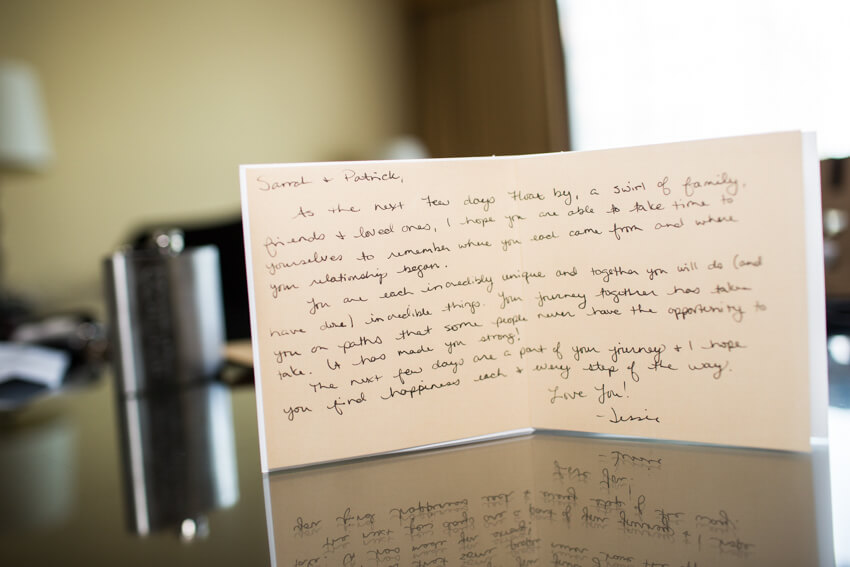 Sarrah & Patrick,
As the next few days float by, a swirl of family,
friends & loved ones, I hope you are able to take time to
yourselves to remember where you each came from and where
your relationship began.
You are each incredibly unique and together you will do (and
have done) incredible things. Your journey together has taken
you on paths that some people never have the opportunity to
take. It has made you strong!
The next few days are a part of your journey & I hope
you find happiness each & every step of the way.
Love You!
-Jessie